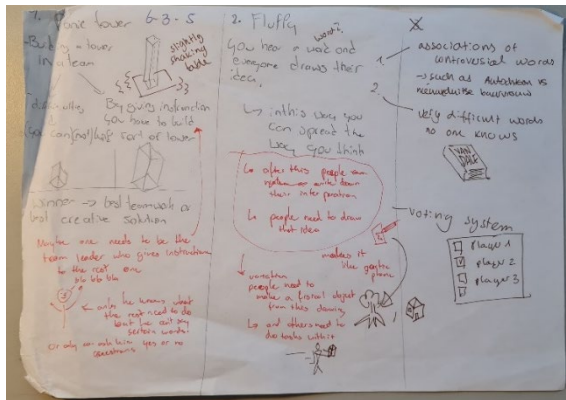 1. Panic tower
6-3-5
- Build a tower
in a team
slightly
shaking
table
- difficulties
By giving instruction
you have to build
You can/not/half sort of tower
Winner → best teamwork or
best creative solution
Maybe one needs to be the
team leader who gives instruction
to the rest
bla bla bla
← only he knows what
the rest need to do
but he can't say
certain words.
Or only can ask him yes or no
questions
2. Fluffy
word?
You hear a and
everyone draws their
idea.
↳ in this way you
can spread the
way you think
↳ after this people
write down
their interpretation
↳ people need to draw
that idea
makes it
like gartic
phone
↓
people need to
make a object
from this drawing
↳ and others need to
do tasks with it
X
1. associations of
controversial words
→ such as
2.
very difficult words
no one knows
VAN
DALE
- voting system
player 1
player 2
player 3